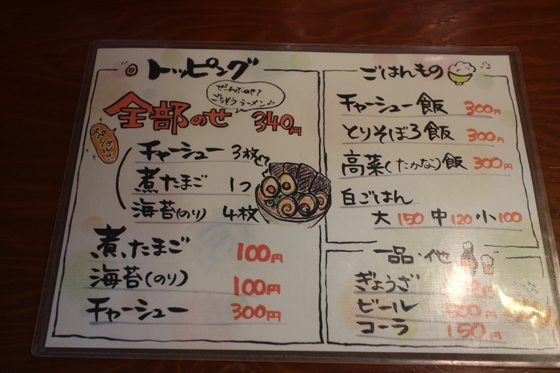 トッピング
ぜーんぶのせて
ごうかラーメン♪
全部のせ 340円
チャーシュー 3枚
煮たまご 1つ
海苔(のり) 4枚
煮たまご 100円
海苔(のり) 100円
チャーシュー 300円
ごはんもの
チャーシュー飯 300円
とりそぼろ飯 300円
高菜(たかな)飯 300円
白ごはん
大150 中120 小100
一品・他
ぎょうざ
ビール 500円
コーラ 150円